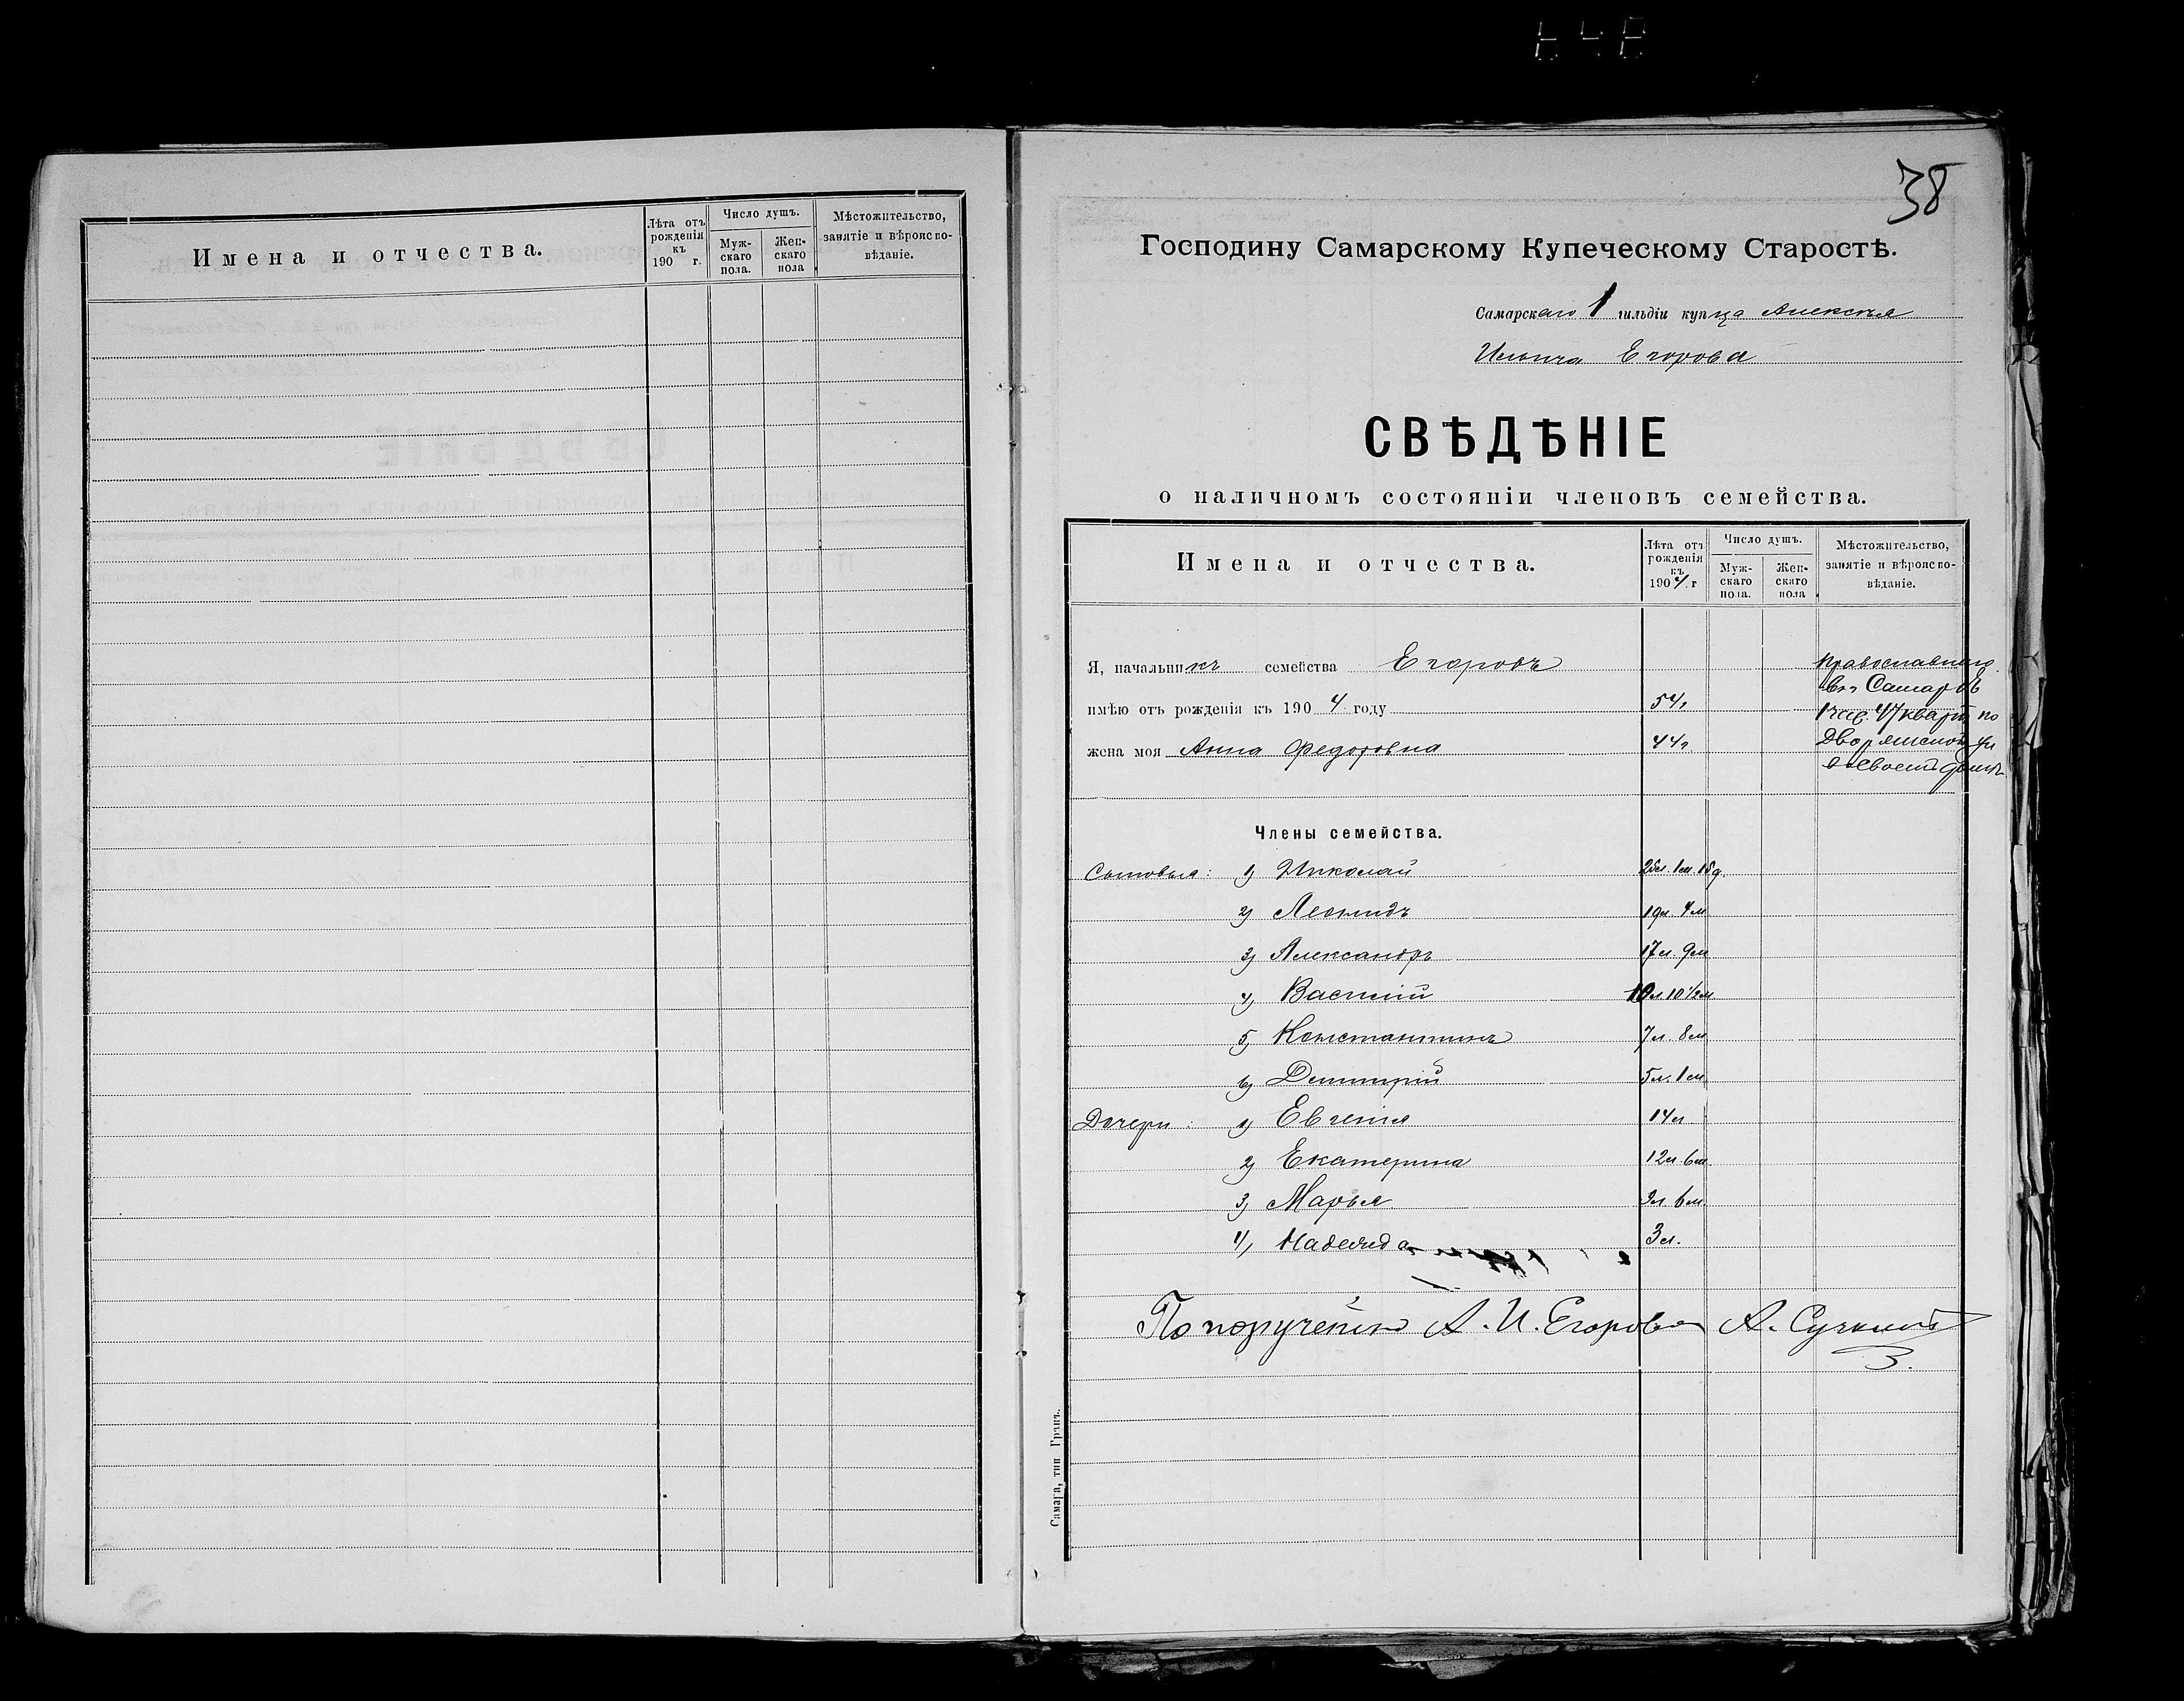 Имена и отчества.
Лѣта отъ рожденія къ 190 г.
Число душъ.
Мужскаго пола.
Женскаго пола
Мѣстожительство, занятіе и вѣроисповѣданіе.
38
Господину Самарскому Купеческому Старостѣ.
Самарскаго 1 гильдіи купца Алексѣя
Ильича Егорова
СВѢДѢНІЕ
о наличномъ состояніи членовъ семейства.
Имена и отчества.
Лѣта отъ рожденія къ 1904 г
Число душъ.
Мужскаго пола.
Женскаго пола
Мѣстожительство, занятіе и вѣроисповѣданіе.
Я, начальникъ семейства Егоровъ
Православнаго
въ Самарѣ
имѣю отъ рожденія къ 1904 году 54
1 час. 47 кварт. по
жена моя Анна Федоровна 44
Дворянской ул
въ своемъ домѣ
Члены семейства.
Сыновья: 1) Николай
2) Леонидъ 19л 4м
3) Александръ 17л 9м
4) Василій 10л. 10 1/2м
5) Константинъ 7л. 8м
6) Димитрій 5л. 1м
Дочери: 1) Евгенія 14л
2) Екатерина 12л. 6м.
3) Марья 9л. 6м.
4) Надежда 3л.
По порученію А. И. Егорова А. Сучковъ
3.
Самара, тип Гранъ.